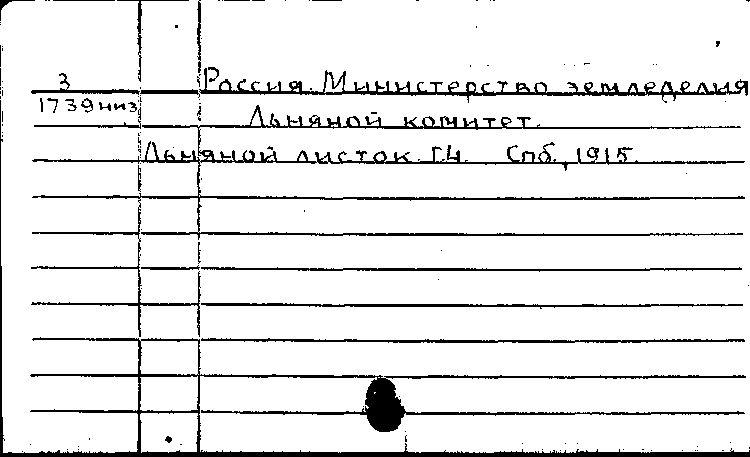 3 Россия. Министерство земледелия
1739 низ Льняной комитет.
Льняной листок. Г.4. Спб., 1915.